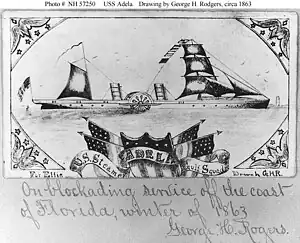 Photo # NH 57250    USS Adela.  Drawing by George H. Rodgers, circa 1863
U.S. Steamer ADELA Gulf Squad
For Ellis
Drawn by G.H.R.
On blockading service off the coast
of Florida, winter of 1863
George H. Rogers.